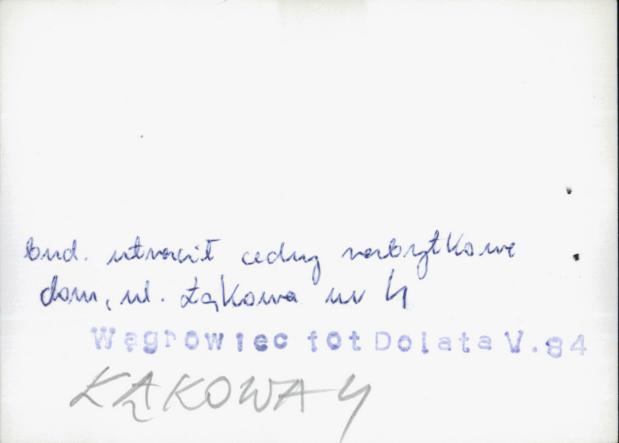 bud. utracił cechy zabytkowe
dom, ul. Łąkowa nr 4
Wągrowiec fot Dolata V.84
ŁĄKOWA 4